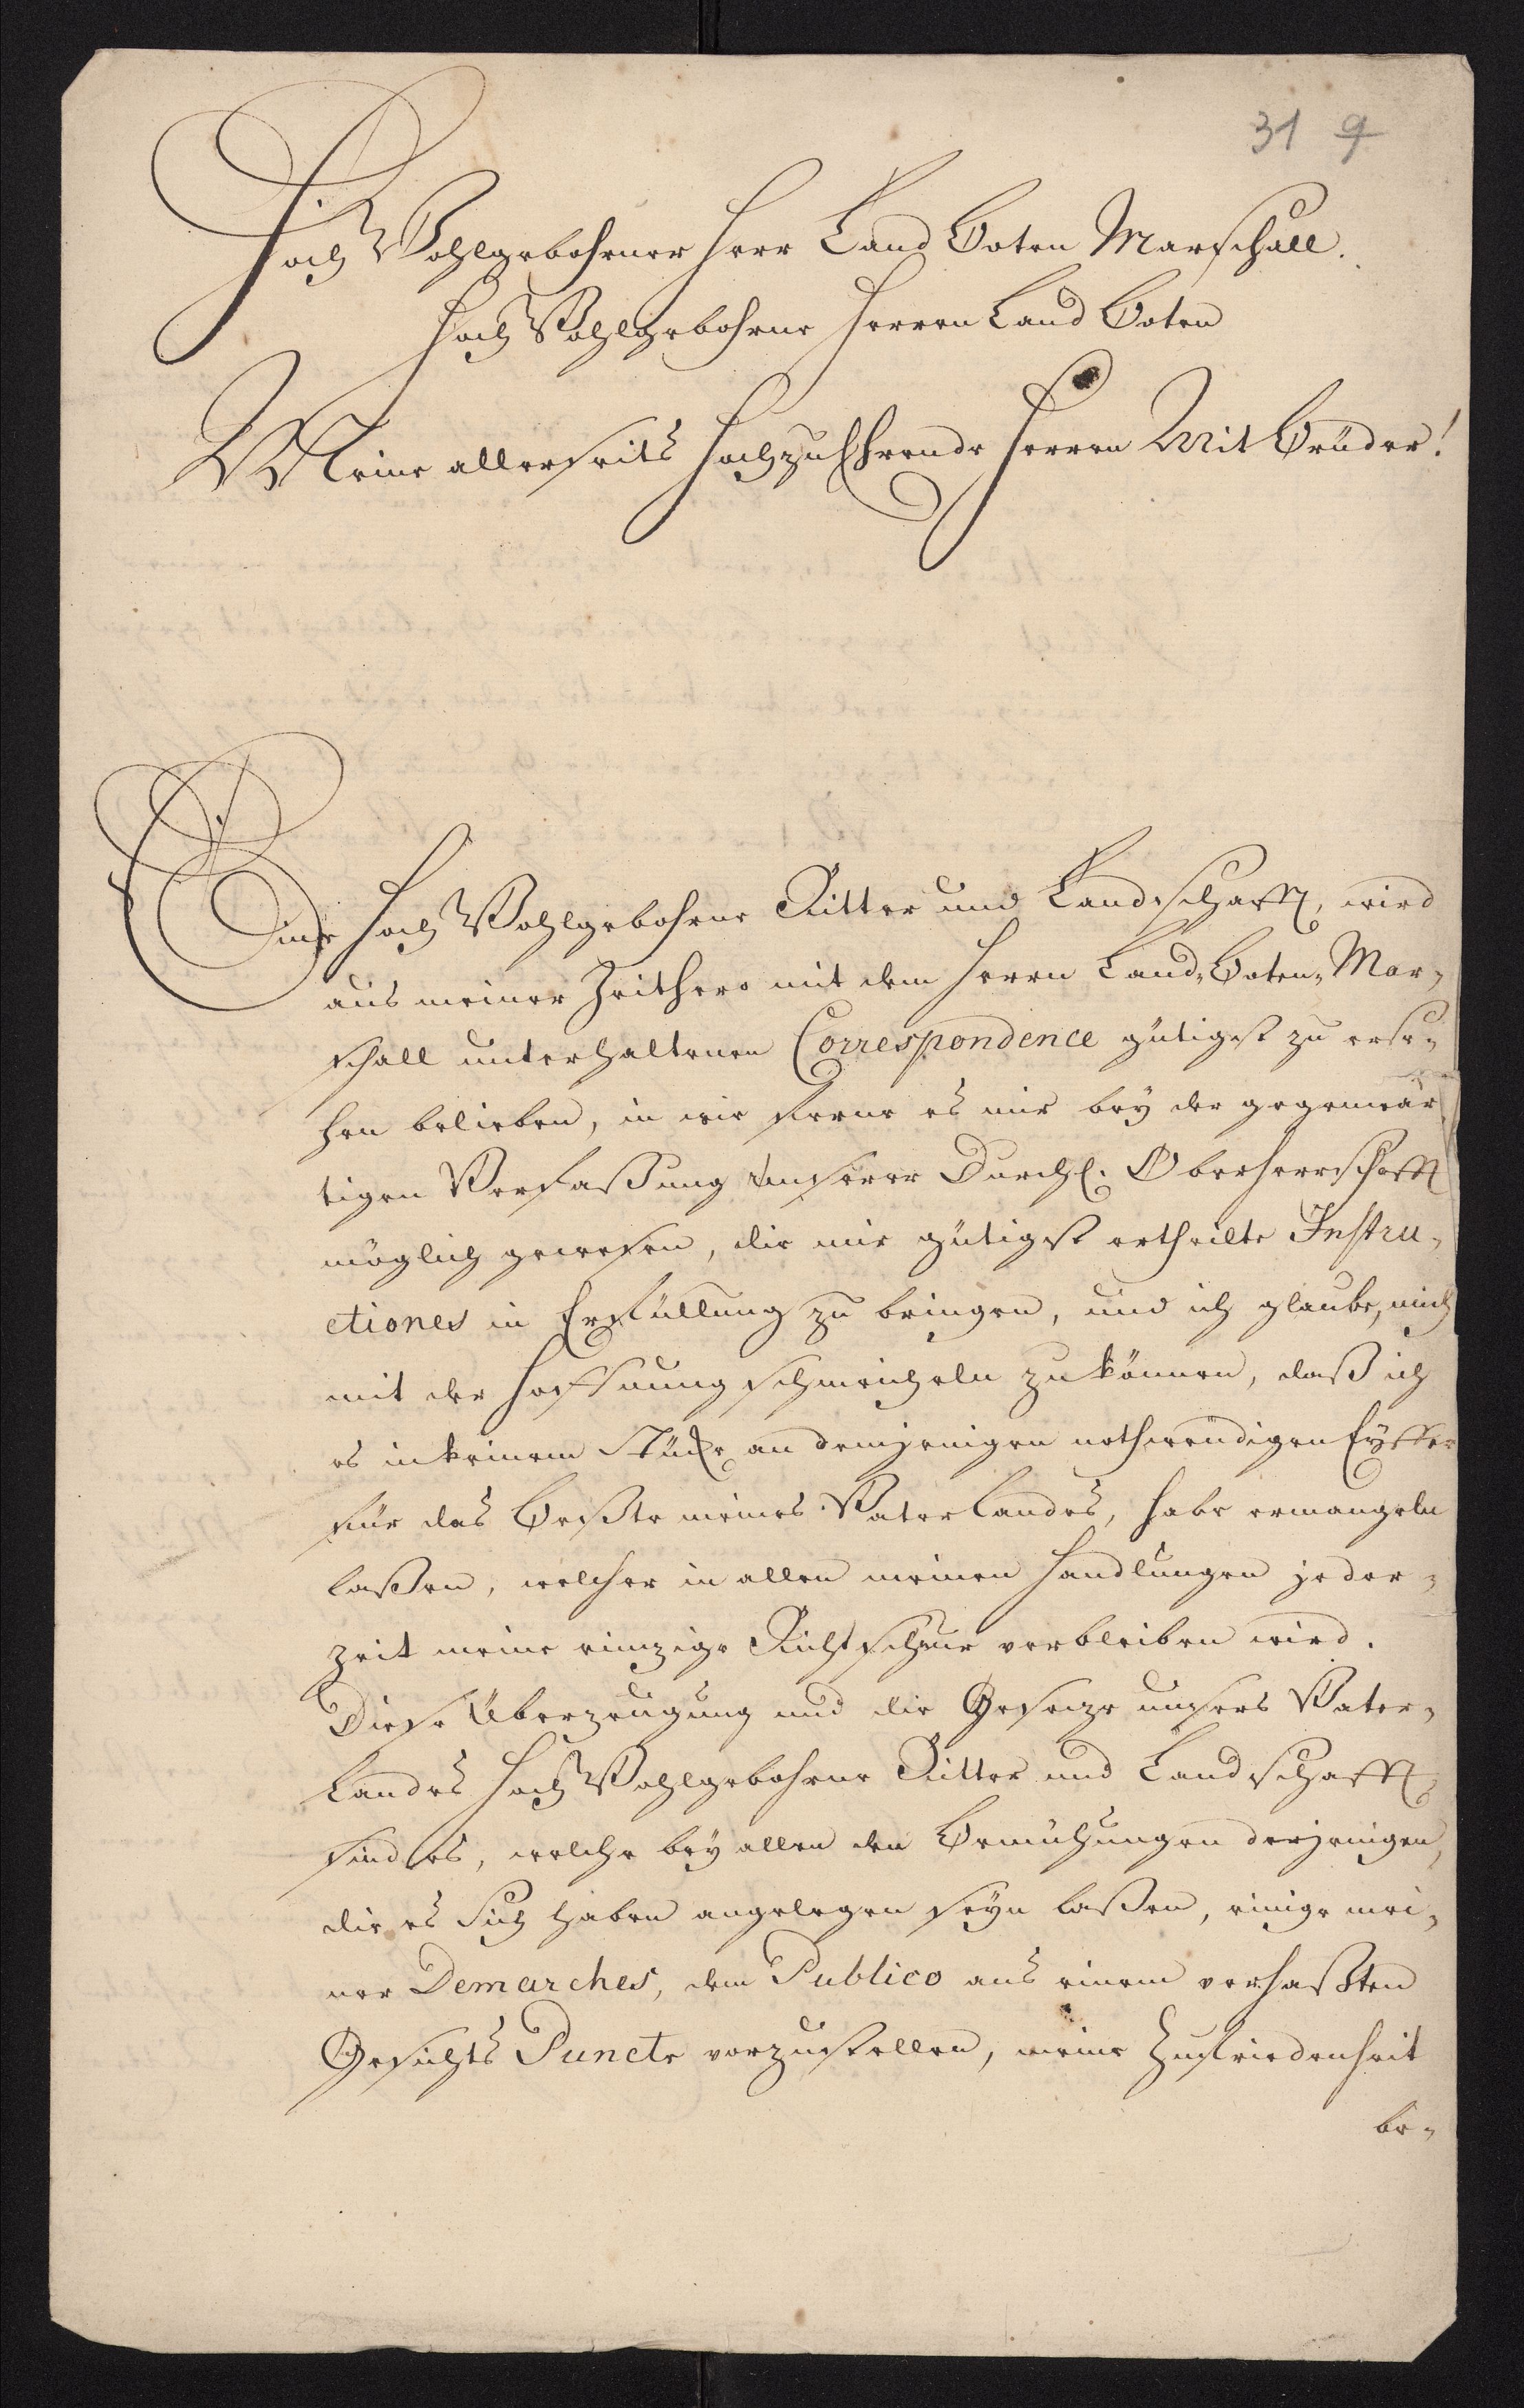 31 9
Hoch Wohlgebohrner Herr Land Boten Marschall.
Hoch Wohlgebohrne Herren Land Boten
Meine allerseits Hochzu Ehrende Herren Mit Brüder!
Eine Hoch Wohlgebohrne Ritter und Landschafft, wird
aus meiner Zeithero mit dem Herrn Land-Boten-Mar-
schall unterhaltenen Correspondence gütigst zu erse-
hen belieben, in wie ferne es mir bey der gegenwär
tigen Verfaßung unserer Durchl. Oberherrschafft
möglich gewesen, die mir gütigst ertheilte Instru-
ctiones in Erfüllung zu bringen, und ich glaube, mich
mit der Hoffnung schmeicheln zu können, daß ich
es in keinem Stücke an demjenigen nothwendigen Eyffer
für das Beßte meines Vaterlandes, habe ermangeln
laßen, welcher in allen meinen Handlungen jeder-
zeit meine einzige Richtschnur verbleiben wird.
Diese Überzeugung und die Geseze unsers Vater-
landes Hoch Wohlgebohrne Ritter und Landschafft
sind es, welche bey allen den Bemühungen derjenigen,
die es sich haben angelegen seyn laßen, einige mei-
ner Demarches, dem Publico aus einem verhaßten
Gesichts Puncte vorzustellen, meine Zufriedenheit
be-